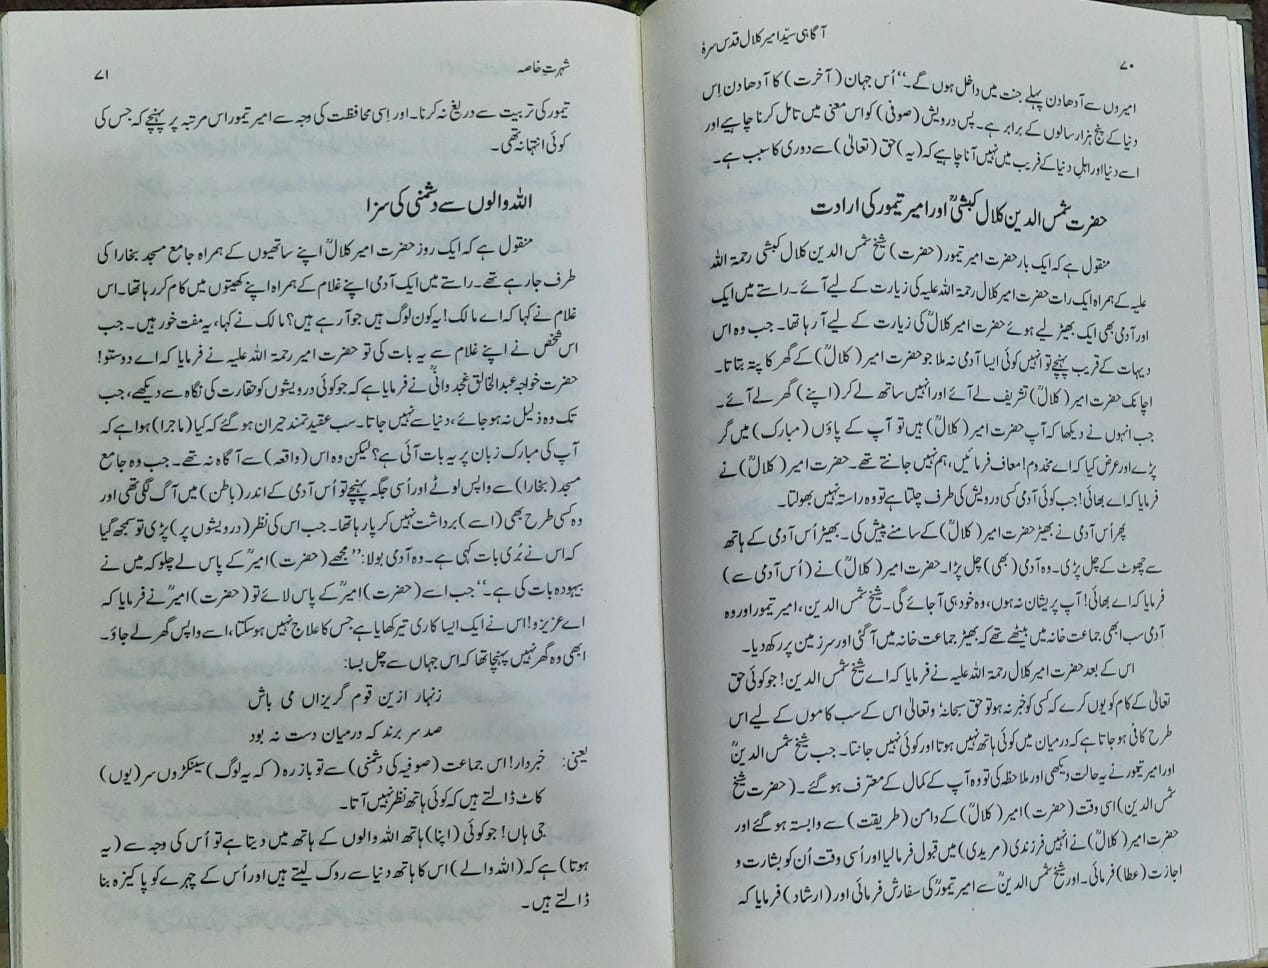 آگاہی سیّد امیر کلال قدس سرہٗ
۷۰
امیروں سے آدھا دن پہلے جنت میں داخل ہوں گے۔‘‘ اُس جہان (آخرت) کا آدھا دن اِس
دنیا کے پنج ہزار سالوں کے برابر ہے۔ پس درویش (صوفی) کو اس معنی میں تامل کرنا چاہیے اور
اسے دنیا اور اہلِ دنیا کے فریب میں نہیں آنا چاہیے کہ (یہ) حق (تعالیٰ) سے دوری کا سبب ہے۔
حضرت شمس الدین کلال کبشیؒ اور امیر تیمور کی ارادت
منقول ہے کہ ایک بار حضرت امیر تیمور (حضرت) شیخ شمس الدین کلال کبشی رحمۃ اللہ
علیہ کے ہمراہ ایک رات حضرت امیر کلال رحمۃ اللہ علیہ کی زیارت کے لیے آئے۔ راستے میں ایک
اور آدمی بھی ایک بھیڑ لیے ہوئے حضرت امیر کلالؒ کی زیارت کے لیے آ رہا تھا۔ جب وہ اس
دیہات کے قریب پہنچے تو انہیں کوئی ایسا آدمی نہ ملا جو حضرت امیر (کلالؒ) کے گھر کا پتہ بتاتا۔
اچانک حضرت امیر (کلالؒ) تشریف لے آئے اور انہیں ساتھ لے کر (اپنے) گھر لے آئے۔
جب انہوں نے دیکھا کہ آپ حضرت امیر (کلالؒ) ہیں تو آپ کے پاؤں (مبارک) میں گر
پڑے اور عرض کیا کہ اے مخدوم! معاف فرمائیں، ہم نہیں جانتے تھے۔ حضرت امیر (کلالؒ) نے
فرمایا کہ اے بھائی! جب کوئی آدمی کسی درویش کی طرف چلتا ہے تو وہ راستہ نہیں بھولتا۔
پھر اُس آدمی نے بھیڑ حضرت امیر (کلالؒ) کے سامنے پیش کی۔ بھیڑ اُس آدمی کے ہاتھ
سے چھوٹ کے چل پڑی۔ وہ آدمی (بھی) چل پڑا۔ حضرت امیر (کلالؒ) نے (اُس آدمی سے)
فرمایا کہ اے بھائی! آپ پریشان نہ ہوں، وہ خود ہی آ جائے گی۔ شیخ شمس الدین، امیر تیمور اور وہ
آدمی سب ابھی جماعت خانہ میں بیٹھے تھے کہ بھیڑ جماعت خانہ میں آ گئی اور سر زمین پر رکھ دیا۔
اس کے بعد حضرت امیر کلال رحمۃ اللہ علیہ نے فرمایا کہ اے شیخ شمس الدین! جو کوئی حق
تعالیٰ کے کام کو یوں کرے کہ کسی کو خبر نہ ہو تو حق سبحانہٗ وتعالیٰ اس کے سب کاموں کے لیے اس
طرح کافی ہو جاتا ہے کہ درمیان میں کوئی ہاتھ نہیں ہوتا اور کوئی نہیں جانتا۔ جب شیخ شمس الدینؒ
اور امیر تیمور نے یہ حالت دیکھی اور ملاحظہ کی تو وہ آپ کے کمال کے معترف ہو گئے۔ (حضرت شیخ
شمس الدین) اسی وقت (حضرت) امیر (کلالؒ) کے دامن (طریقت) سے وابستہ ہو گئے اور
حضرت امیر (کلالؒ) نے انہیں فرزندی (مریدی) میں قبول فرما لیا اور اُسی وقت اُن کو بشارت و
اجازت (عطا) فرمائی۔ اور شیخ شمس الدینؒ سے امیر تیمورؒ کی سفارش فرمائی اور (ارشاد) فرمایا کہ
شہرتِ خاصہ
۷۱
تیمور کی تربیت سے دریغ نہ کرنا۔ اور اِسی محافظت کی وجہ سے امیر تیمور اس مرتبہ پر پہنچے کہ جس کی
کوئی انتہا نہ تھی۔
اللہ والوں سے دشمنی کی سزا
منقول ہے کہ ایک روز حضرت امیر کلالؒ اپنے ساتھیوں کے ہمراہ جامع مسجد بخارا کی
طرف جا رہے تھے۔ راستے میں ایک آدمی اپنے غلام کے ہمراہ اپنے کھیتوں میں کام کر رہا تھا۔ اس
غلام نے کہا کہ اے مالک! یہ کون لوگ ہیں جو آ رہے ہیں؟ مالک نے کہا، یہ مفت خور ہیں۔ جب
اس شخص نے اپنے غلام سے یہ بات کی تو حضرت امیر رحمۃ اللہ علیہ نے فرمایا کہ اے دوستو!
حضرت خواجہ عبدالخالق غجدوانیؒ نے فرمایا ہے کہ جو کوئی درویشوں کو حقارت کی نگاہ سے دیکھے، جب
تک وہ ذلیل نہ ہو جائے، دنیا سے نہیں جاتا۔ سب عقیدتمند حیران ہو گئے کہ کیا (ماجرا) ہوا ہے کہ
آپ کی مبارک زبان پر یہ بات آئی ہے؟ لیکن وہ اس (واقعہ) سے آگاہ نہ تھے۔ جب وہ جامع
مسجد (بخارا) سے واپس لوٹے اور اُسی جگہ پہنچے تو اُس آدمی کے اندر (باطن) میں آگ لگی تھی اور
وہ کسی طرح بھی (اسے) برداشت نہیں کر پا رہا تھا۔ جب اس کی نظر (درویشوں پر) پڑی تو سمجھ گیا
کہ اس نے بُری بات کہی ہے۔ وہ آدمی بولا: ’’مجھے (حضرت) امیرؒ کے پاس لے چلو کہ میں نے
بیہودہ بات کی ہے۔‘‘ جب اسے (حضرت) امیرؒ کے پاس لائے تو (حضرت) امیرؒ نے فرمایا کہ
اے عزیزو! اس نے ایک ایسا کاری تیر کھایا ہے جس کا علاج نہیں ہو سکتا، اسے واپس گھر لے جاؤ۔
ابھی وہ گھر نہیں پہنچا تھا کہ اس جہاں سے چل بسا:
زنہار ازین قوم گریزاں می باش
صد سر برند کہ درمیان دست نہ بود
یعنی: خبردار! اس جماعت (صوفیہ کی دشمنی) سے تو باز رہ (کہ یہ لوگ) سینکڑوں سر (یوں)
کاٹ ڈالتے ہیں کہ کوئی ہاتھ نظر نہیں آتا۔
جی ہاں! جو کوئی (اپنا) ہاتھ اللہ والوں کے ہاتھ میں دیتا ہے تو اُس کی وجہ سے (یہ
ہوتا) ہے کہ (اللہ والے) اس کا ہاتھ دنیا سے روک لیتے ہیں اور اُس کے چہرے کو پاکیزہ بنا
ڈالتے ہیں۔